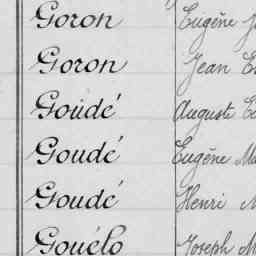 Goron Eugène
Goron Jean
Goudé Auguste
Goudé Eugène
Goudé Henri
Gouélo Joseph